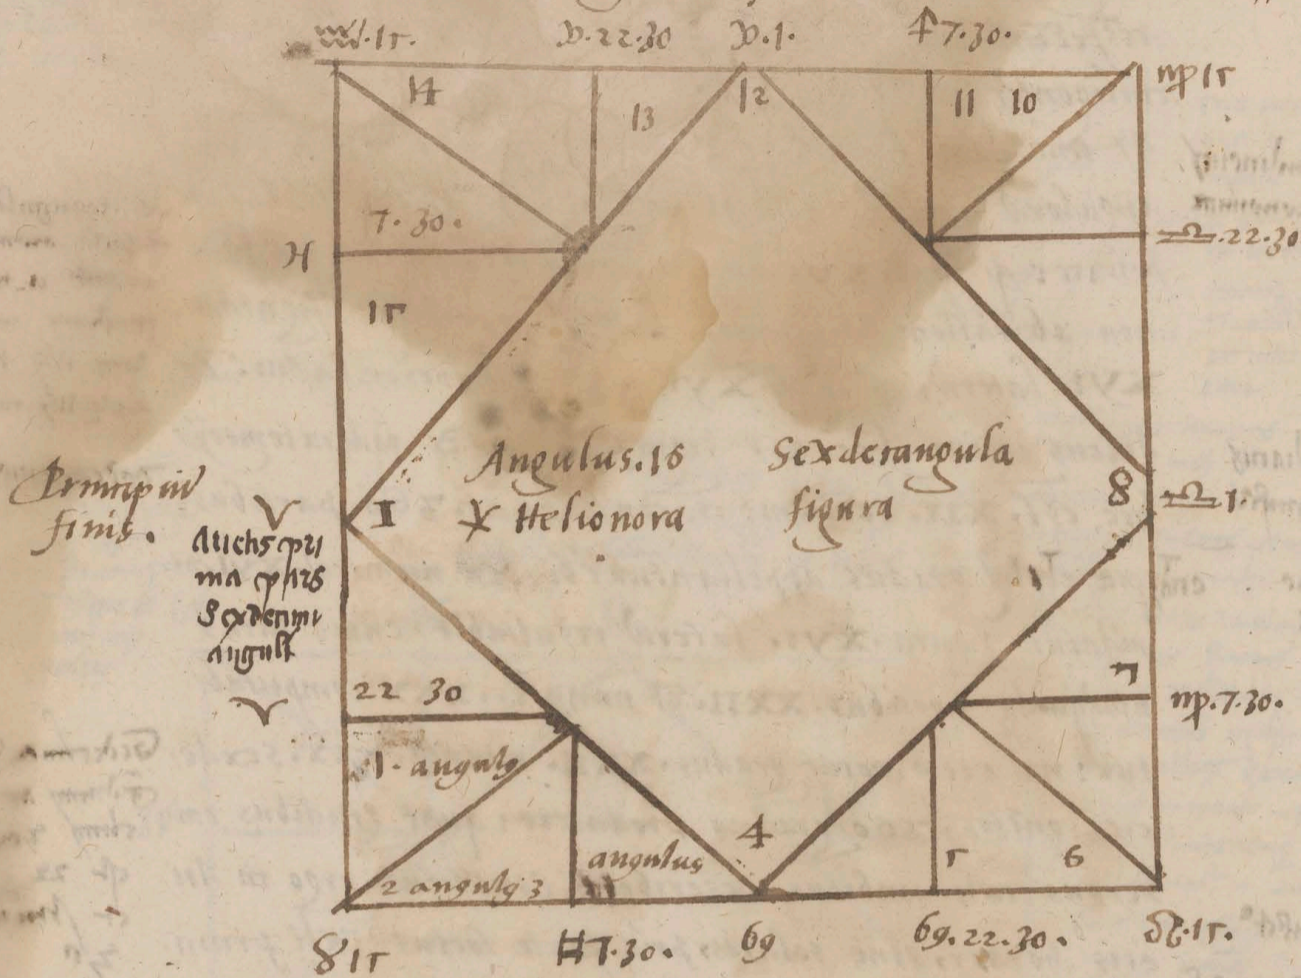 ♒.15. ♑.22.30 ♑.1. ♐7.30.
14 13 12 11 10 ♍15
♓ 7.30. ♎.22.30
15
Angulus.16 Sexdecangula
X Helionora figura
Principiū
finis.
1 8 ♎1.
Arietis pri
ma pars
Sexdecimi
anguli
22 30 7 ♍.7.30.
1. angulꝯ
4
angulus
2 angulꝯ 3 5 6
♉15 ♊7.30. ♋ ♋.22.30. ♌.15.